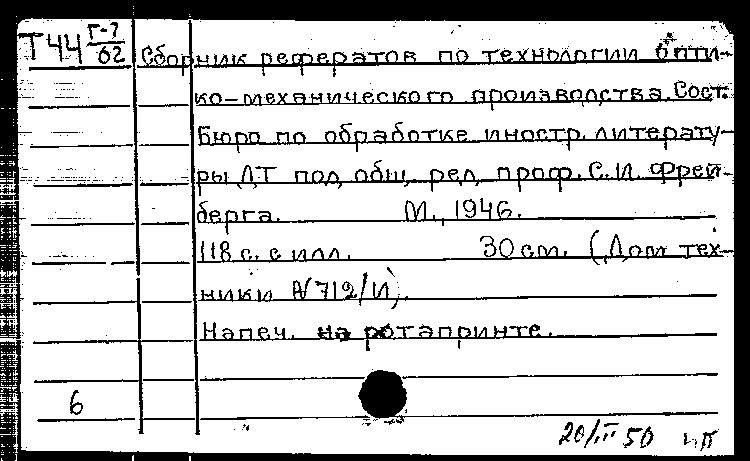 Т44 Г-7/62 Сборник рефератов по технологии опти-
ко-механического производства. Сост.
Бюро по обработке иностр. литерату-
ры ДТ под общ. ред. проф. С.И. Фрей-
берга. М., 1946.
118 с. с илл. 30 см. (Дом тех-
ники N 712/И).
Напеч. на ротапринте.
6
20/II 50